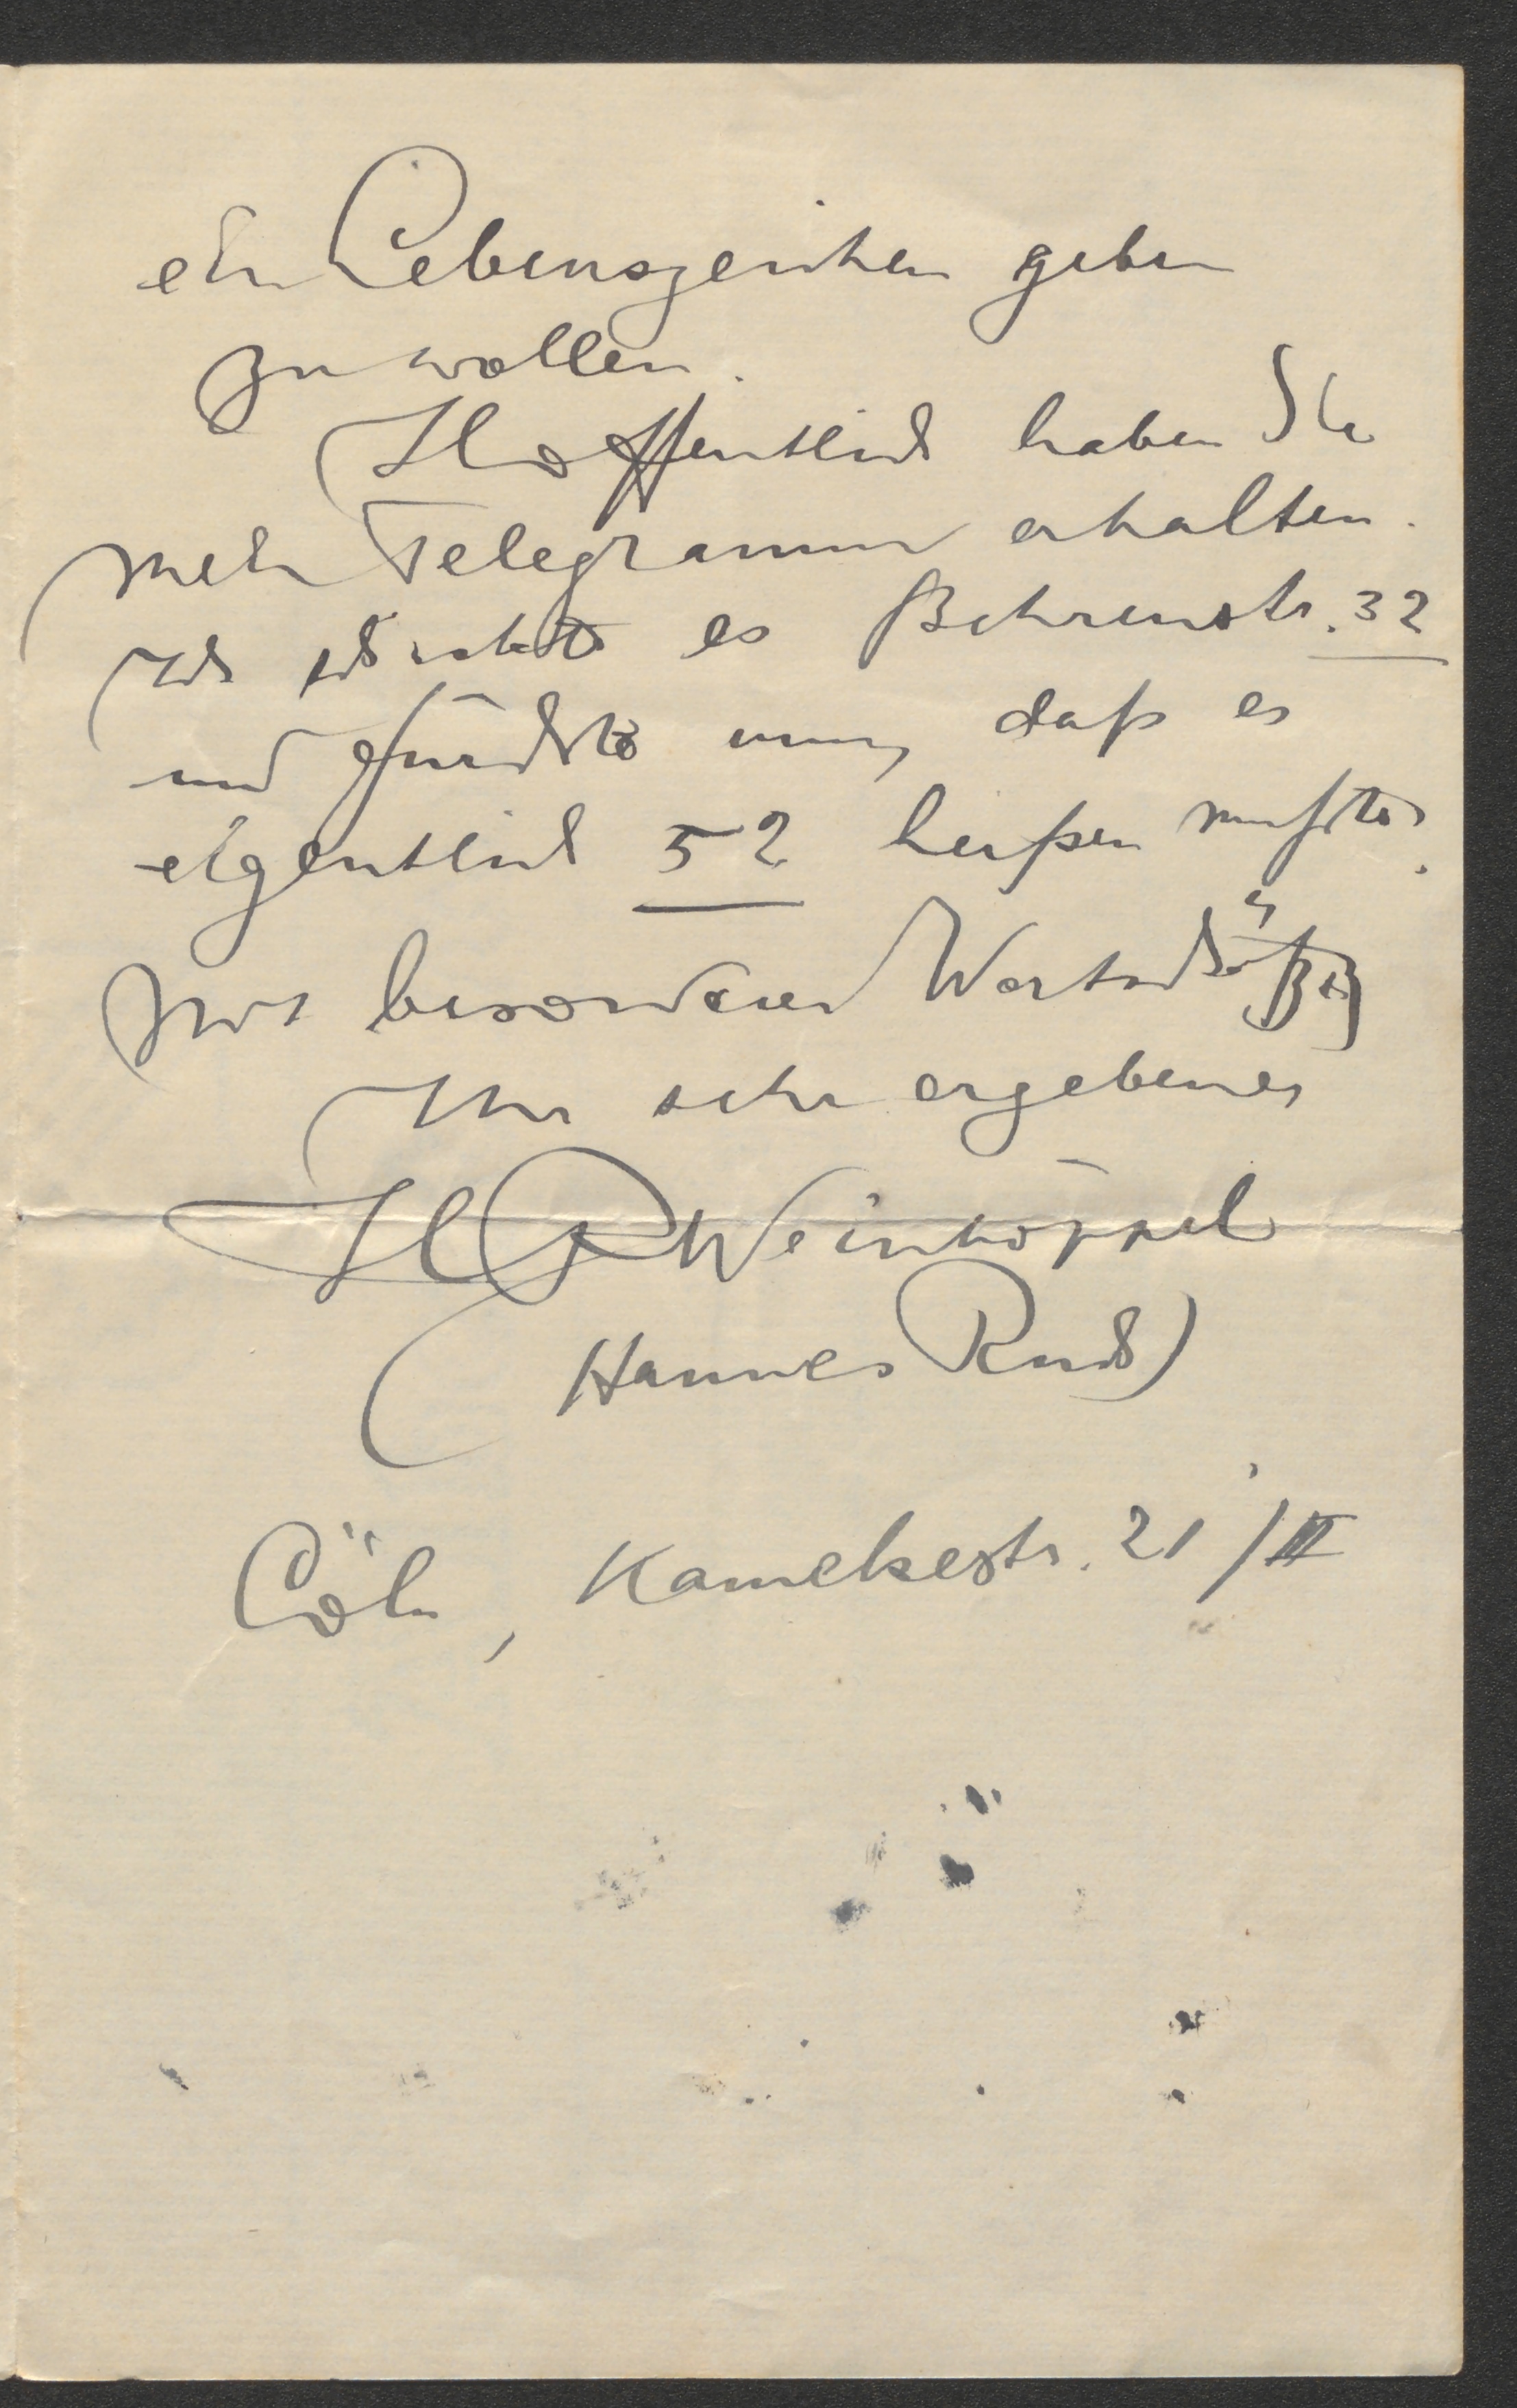 ein Lebenszeichen geben
zu wollen.
Hoffentlich haben Sie
mein Telegramm erhalten.
Ich schickte es Behrenstr. 32
und fürchte nun, daß es
eigentlich 52 heißen mußte.
Mit besonderer Wertschätzg
Ihr sehr ergebener
HR Weinhöppel
(Hannes Ruch)
Cöln, Kamekestr. 21/III